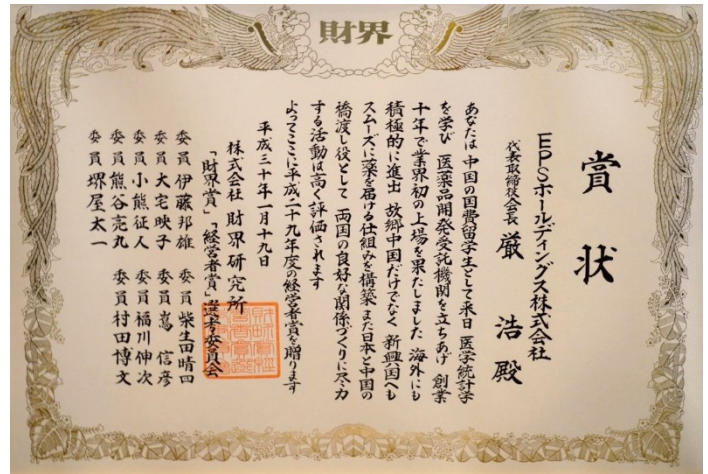 財界
賞状
EPSホールディングス株式会社
代表取締役会長 厳 浩 殿
あなたは 中国の国費留学生として来日 医学統計学
を学び 医薬品開発受託機関を立ちあげ 創業
十年で業界初の上場を果たしました 海外にも
積極的に進出 故郷中国だけでなく 新興国へも
スムーズに薬を届ける仕組みを構築 また日本と中国の
橋渡し役として 両国の良好な関係づくりに尽力
する活動は高く評価されます
よってここに平成二十九年度の経営者賞を贈ります
平成三十年一月十九日
株式会社 財界研究所
「財界賞」「経営者賞」選考委員会
委員 伊藤邦雄 委員 柴生田晴四
委員 大宅映子 委員 嶌 信彦
委員 小熊征人 委員 福川伸次
委員 熊谷亮丸 委員 村田博文
委員 堺屋太一